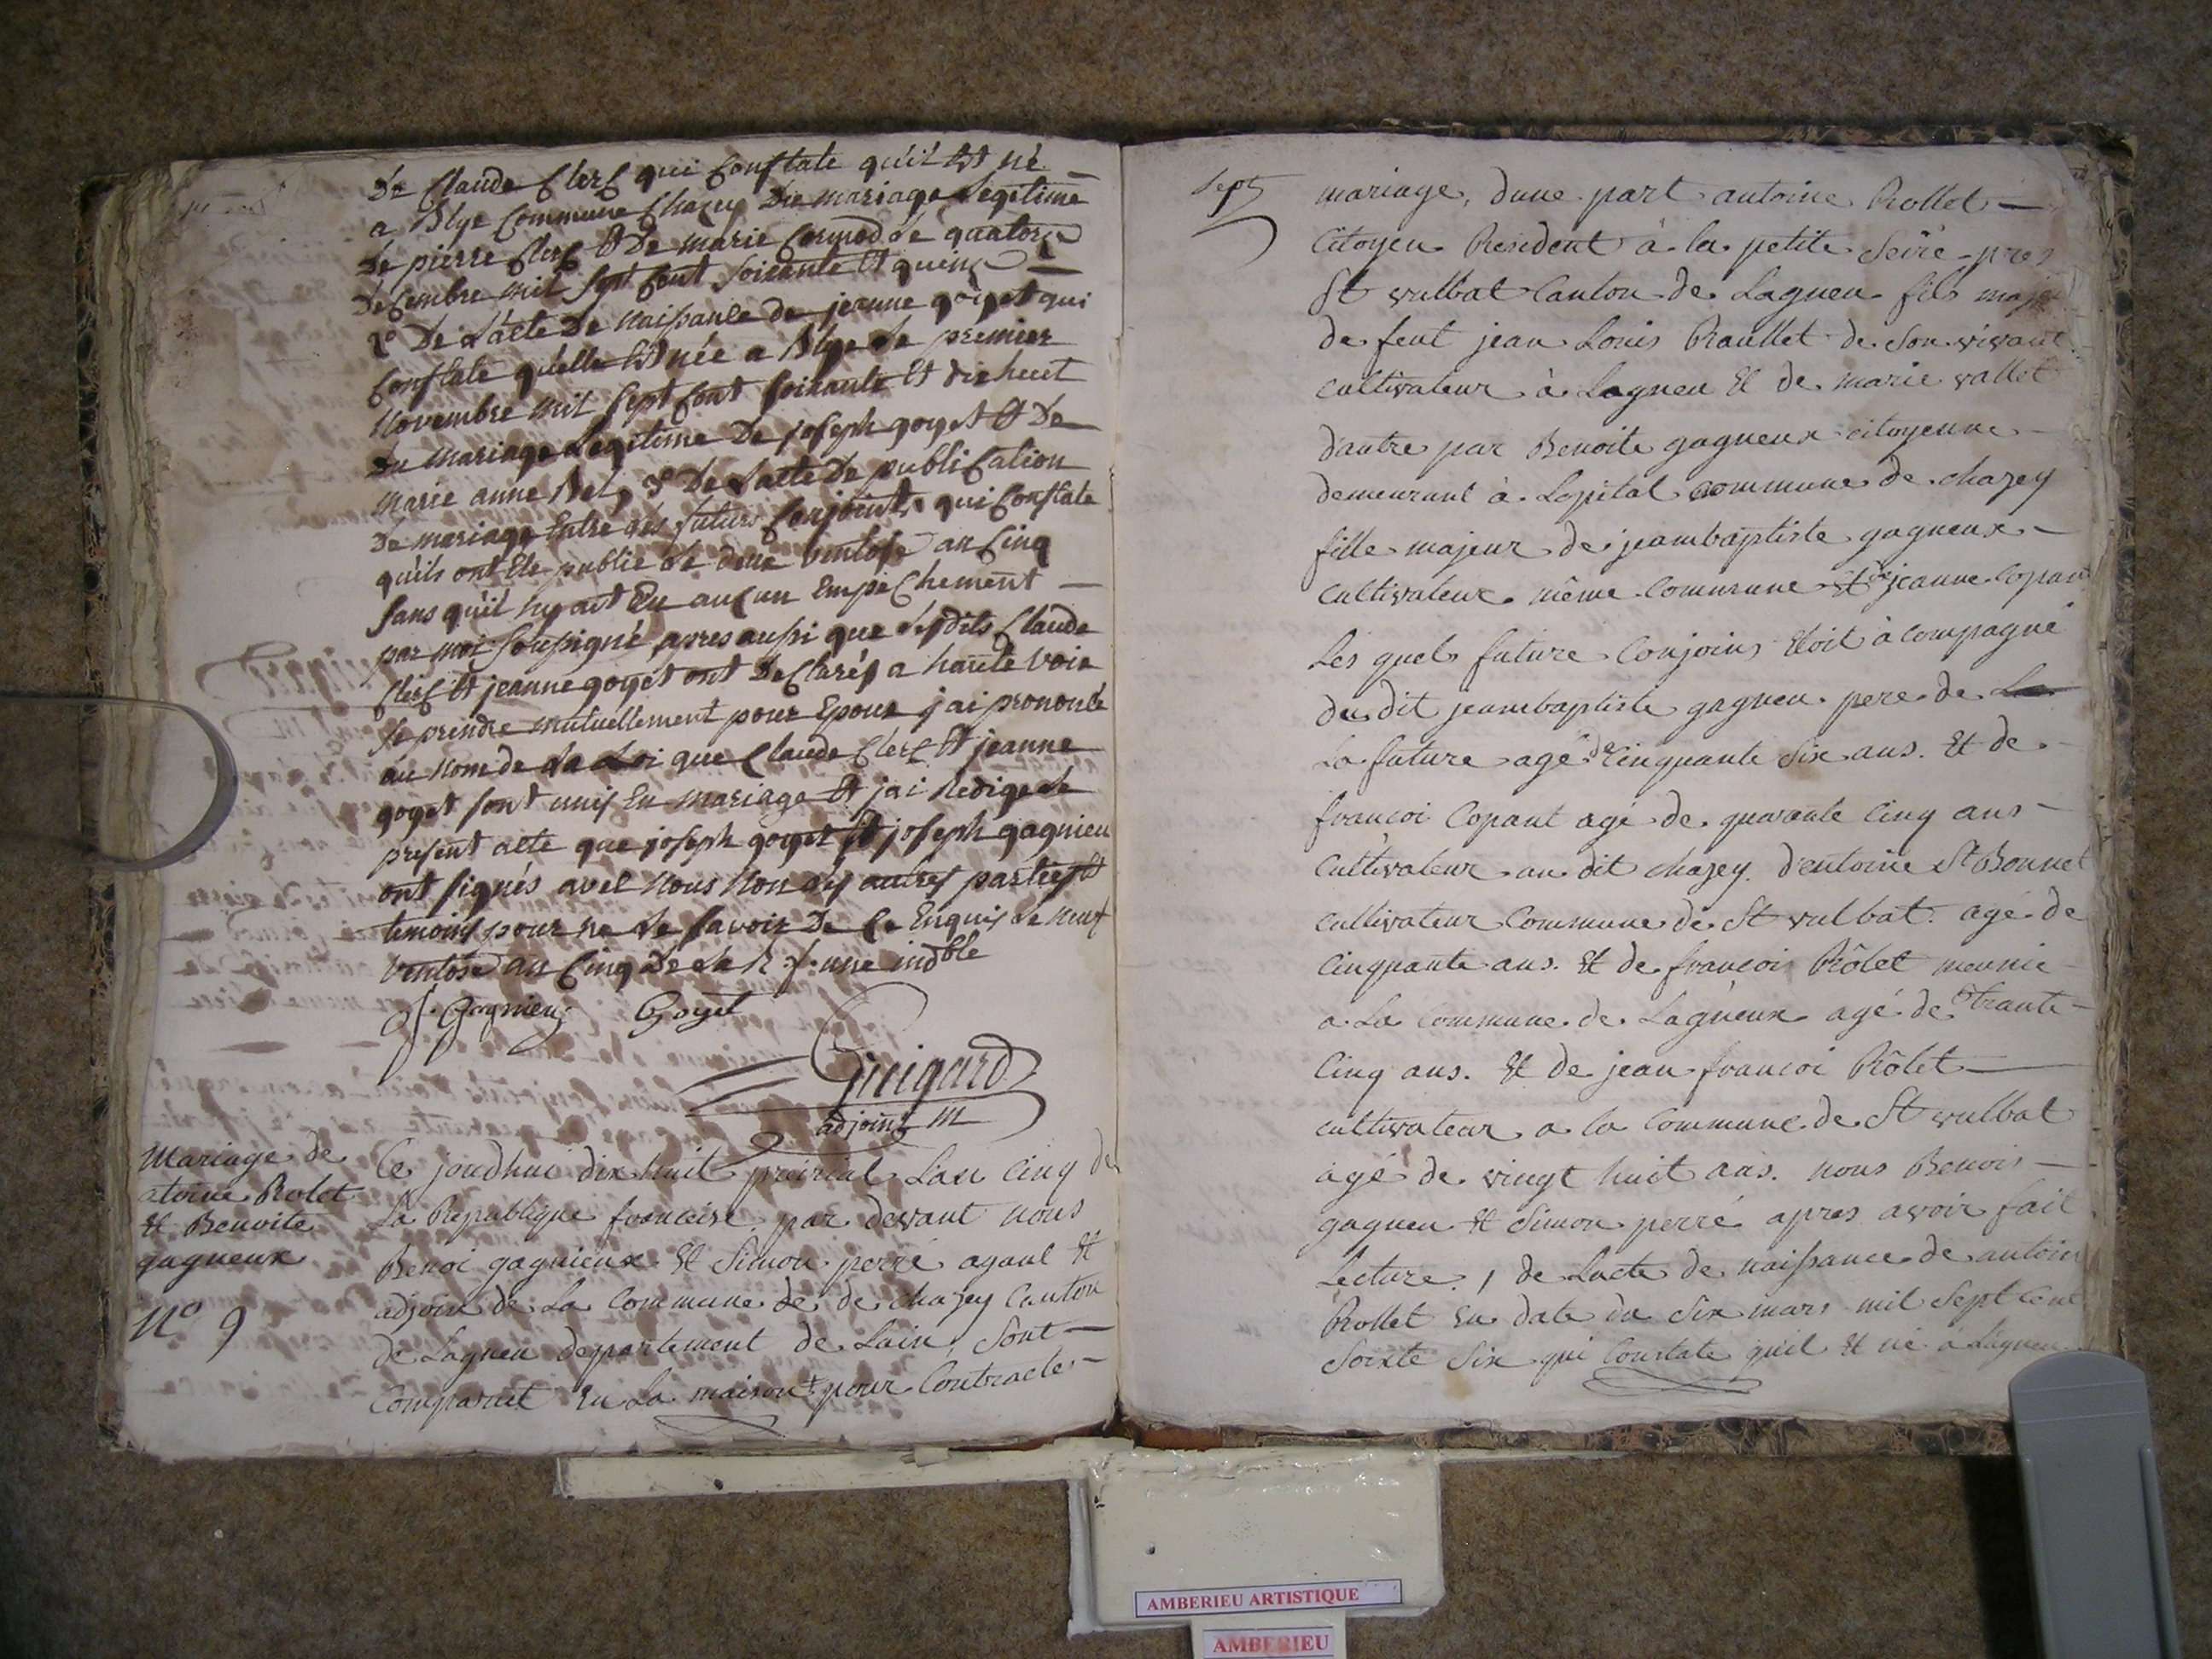 De Claude Clerc qui Constate qu'il Est né
a Blye Commune Chazey Du mariage Legitime
De pierre Clerc & De marie Cormod le quatorze
Decembre mil Sept Cent Soixante Et quinze
2° De L'acte De Naissance de jeanne goyet qui
Constate qu'elle Est née a Blye Le premier
Novembre mil Sept Cent Soixante Et dix huit
Du mariage Legitime De joseph goyet Et De
marie anne Bel, 3° De L'acte De publication
De mariage Entre les futurs Conjoints qui Constate
qu'ils ont Ete publié le deux Ventose an Cinq
Sans qu'il y ait Eu aucun Empechement
par moi Soussigné apres aussi que Lesdits Claude
Clerc Et jeanne goyet ont Declarés a haute Voix
Se prendre mutuellement pour Epoux j'ai prononcé
au Nom de La Loi que Claude Clerc Et jeanne
goyet sont unis En mariage Et j'ai Redigé Le
present acte que joseph goyet Et joseph gagnieu
ont signés avec Nous Non Les autres parties Et
temoins pour ne Le Savoir De Ce Enquis Le Neuf
Ventose an Cinq De La R. f. une indble
J. Gagnieu Goyet
Guigard
adjoint m
Mariage de
atoine Rolet
Et Benoite
gagneux
N° 9
Ce joudhui dix huit preirial Lan Cinq de
La Republique francoise par devant nous
Benoi gagnieux Et Simon perré agant Et
adjoin de La Commune de de chazey Canton
de Lagneu departement de Lain, Sont
Comparut En La maison pour Contracter
Sept
mariage, dune part antoine Rollet
Citoyen Resident à la petite Serre pres
St vulbat Canton de Lagneu fils maje
de feut jean Louis Raullet de Son vivant
cultivateur à Lagneu Et de marie vallet
dautre par Benoite gagneux citoyenne
demeurant à Lopital commune de chazey
fille majeur de jeambaptiste gagneux
Cultivateur même Commune Et de jeanne Copan
Les quels future Conjoins Etoit à Compagné
du dit jeambaptiste gagneu pere de La
La future agé de Cinquante Six ans. Et de
francoi Copant agé de quarante Cinq ans
Cultivateur au dit chazey d'entoine St Bonnet
cultivateur Commune de St vulbat agé de
Cinquante ans. Et de francoi Rôlet meunie
a La Commune de Lagneux agé de trante
Cinq ans. Et de jean francoi Rôlet
cultivateur a la Commune de St vulbat
agé de vingt huit ans. nous Benois
gagneu Et Simon perré apres avoir fait
Lecture, 1 de Lacte de naissance de antoin
Rollet En date du Six mars mil Sept Cent
Soixte Six qui Constate quil Et né a Lagneu
AMBERIEU ARTISTIQUE
AMBERIEU